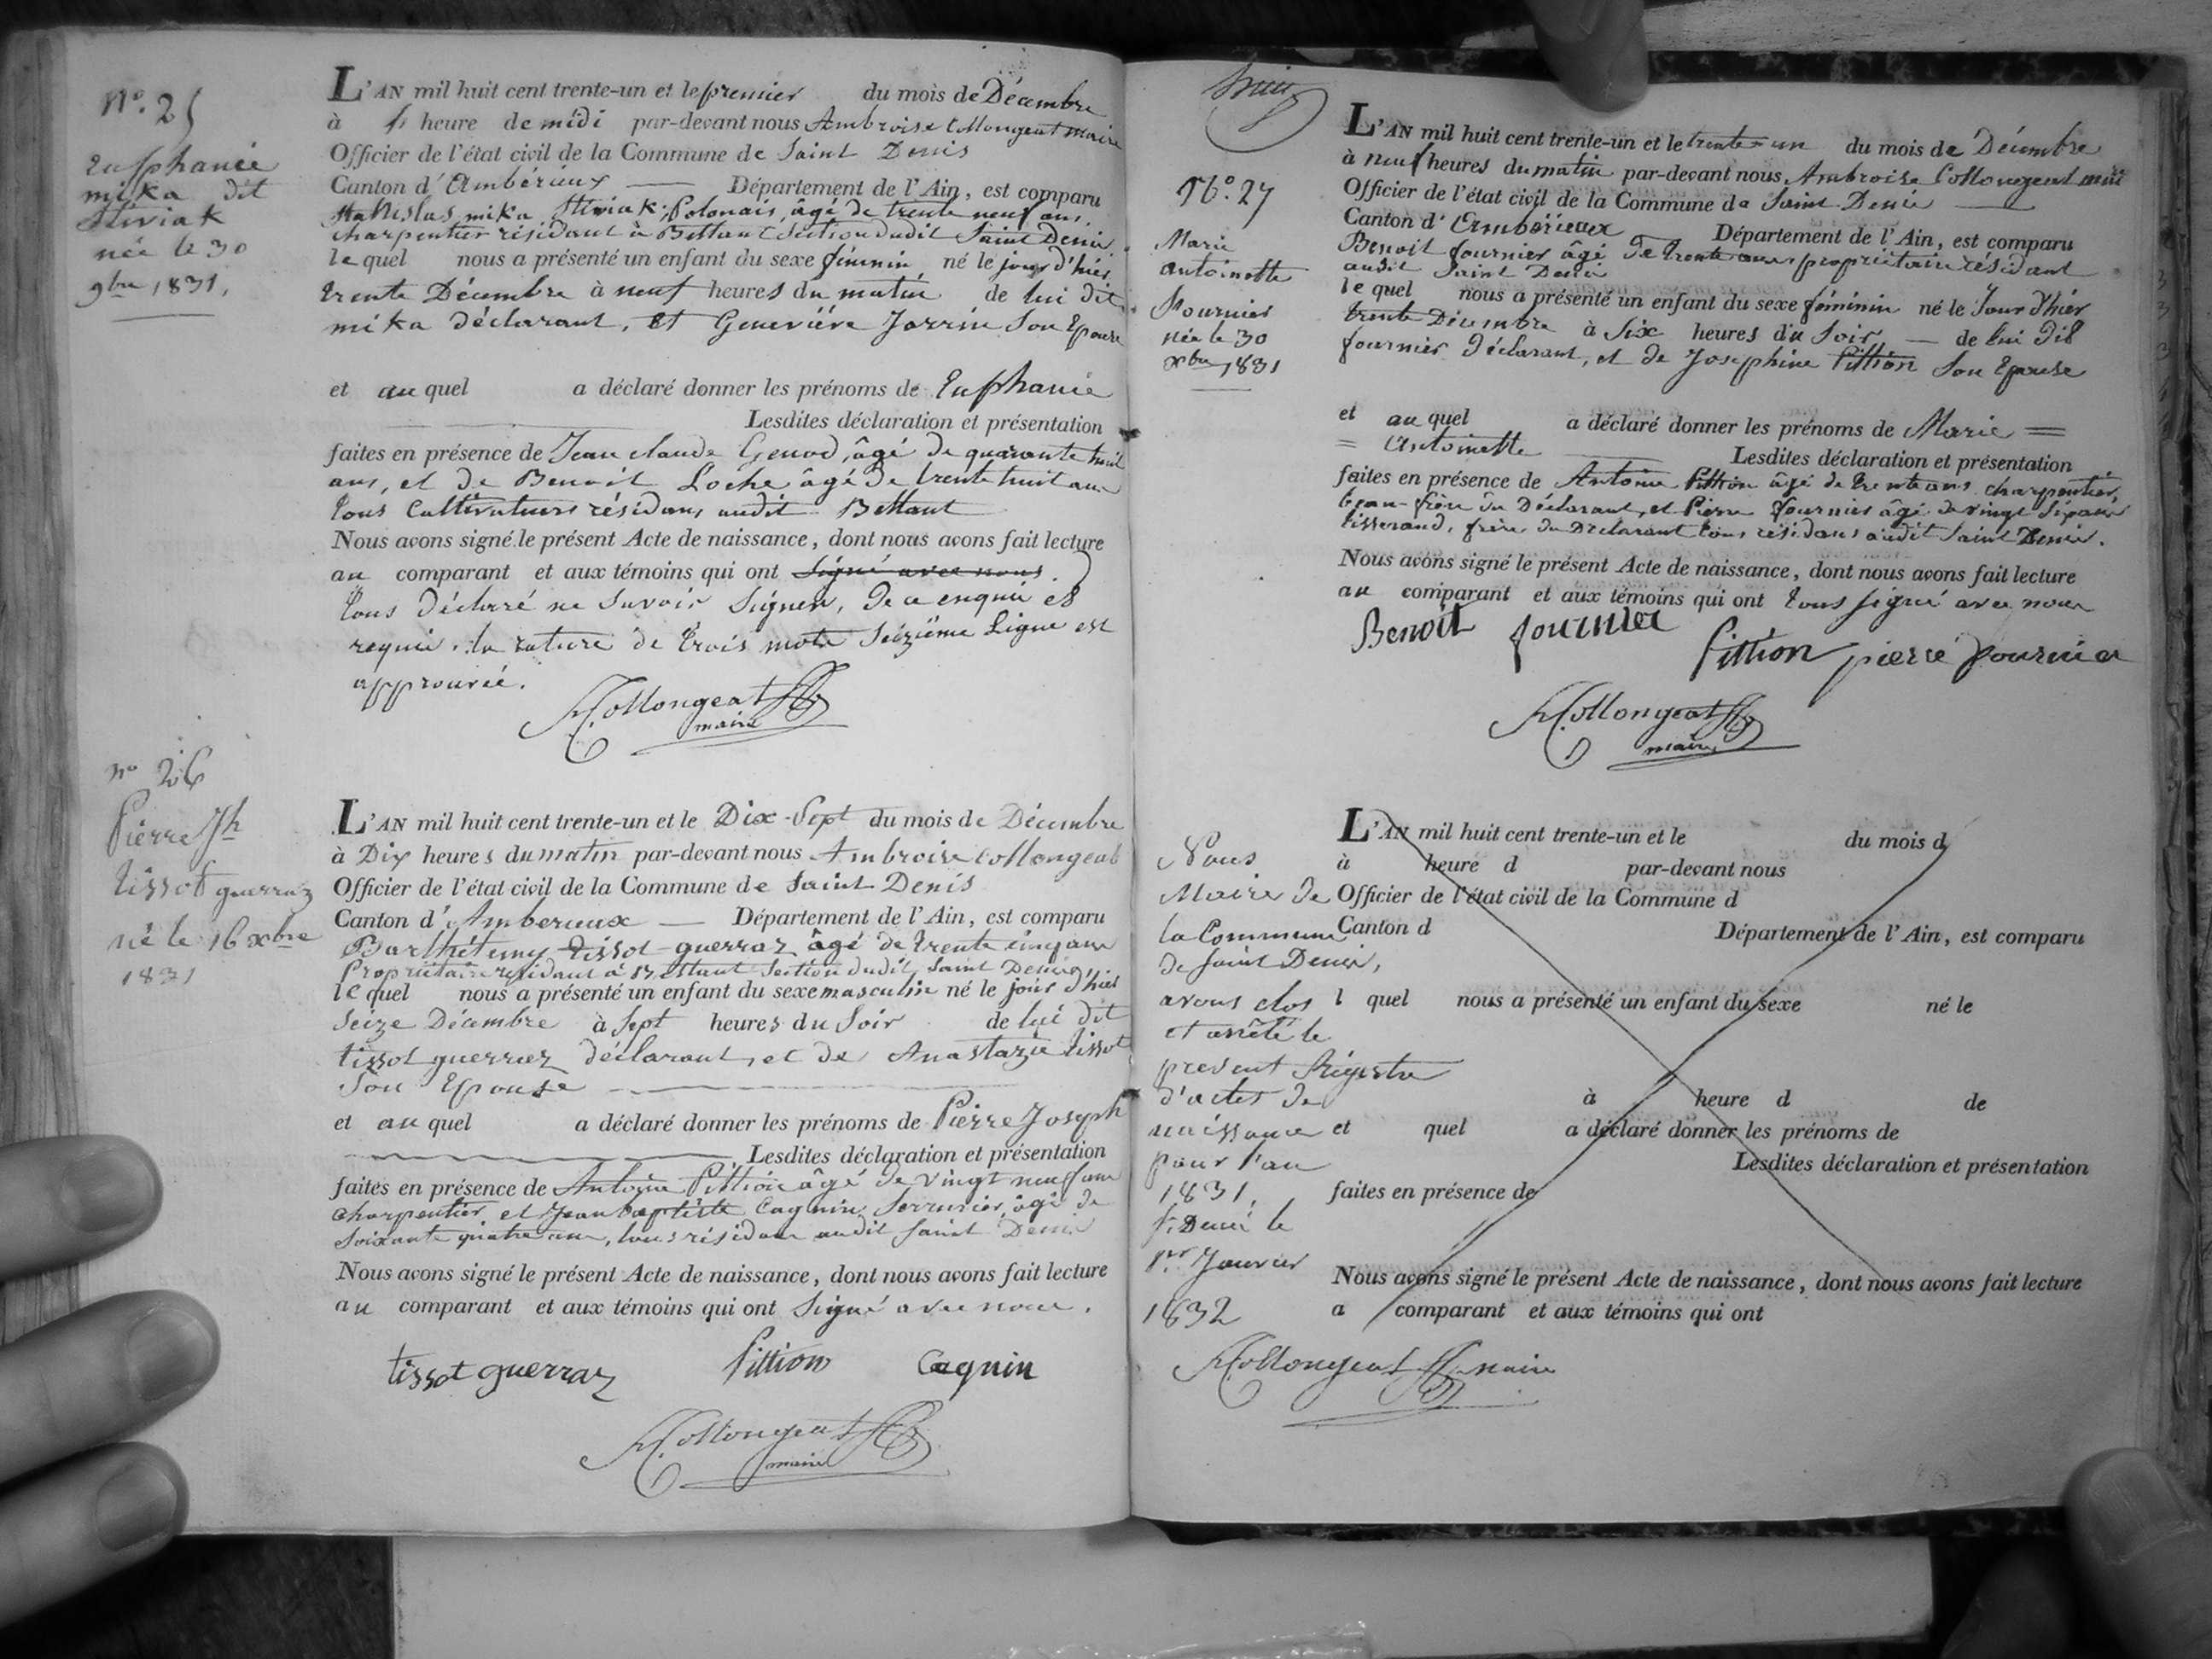 N.o 25
Euphanie
mika dit
Stiviak
née le 30
9bre 1831.
L'AN mil huit cent trente-un et le premier du mois de Décembre
à heure de midi par-devant nous Ambroise Collongeat maire
Officier de l'état civil de la Commune de Saint Denis
Canton d'Ambérieux Département de l'Ain, est comparu
Stanislas mika Stiviak, Polonais, âgé de trente neuf ans,
charpentier résidant à Bettant Section dudit Saint Denis
lequel nous a présenté un enfant du sexe féminin né le jour d'hier
trente Décembre à neuf heures du matin de lui dit
mika déclarant, et Geneviéve Jarrin Son Epouse
et auquel a déclaré donner les prénoms de Euphanie
Lesdites déclaration et présentation
faites en présence de Jean claude Genod, âgé de quarante huit
ans, et de Benoit Loche âgé de trente huit ans
tous Cultivateurs résidans audit Bettant
Nous avons signé le présent Acte de naissance, dont nous avons fait lecture
au comparant et aux témoins qui ont Signé avec nous.
tous déclaré ne Savoir Signer, de ce enquis et
requis. la rature de trois mots Seizième Ligne est
approuvée.
Collongeat
maire
no 26
Pierre Jh
tissot guerraz
né le 16 xbre
1831
L'AN mil huit cent trente-un et le Dix-Sept du mois de Décembre
à Dix heures du matin par-devant nous Ambroise Collongeat
Officier de l'état civil de la Commune de Saint Denis
Canton d'Amberieux Département de l'Ain, est comparu
Barthélemy tissot guerraz âgé de trente cinq ans
Propriétaire résidant à Bettant Section dudit Saint Denis,
lequel nous a présenté un enfant du sexe masculin né le jour d'hier
Seize Décembre à Sept heures du Soir de lui dit
tissot guerraz déclarant, et de Anastazie tissot
Son Epouse
et au quel a déclaré donner les prénoms de Pierre Joseph
Lesdites déclaration et présentation
faites en présence de Antoine Pittion âgé de vingt neuf ans
charpentier, et Jean baptiste Cagnin Serrurier, âgé de
Soixante quatre ans, tous résidans audit Saint Denis
Nous avons signé le présent Acte de naissance, dont nous avons fait lecture
au comparant et aux témoins qui ont Signé avec nous.
tissot guerraz Pittion Cagnin
Collongeat
maire
N.o 27
Marie
antoinette
Fournier
née le 30
xbre 1831
L'AN mil huit cent trente-un et le trente-un du mois de Décembre
à neuf heures du matin par-devant nous Ambroise Collongeat maire
Officier de l'état civil de la Commune de Saint Denis
Canton d'Ambérieux Département de l'Ain, est comparu
Benoit fournier âgé de trente ans propriétaire résidant
audit Saint Denis
lequel nous a présenté un enfant du sexe féminin né le Jour d'hier
trente Décembre à Six heures du Soir de lui dit
fournier déclarant, et de Josephine Pittion Son Epouse
et au quel a déclaré donner les prénoms de Marie =
= Antoinette Lesdites déclaration et présentation
faites en présence de Antoine Pittion âgé de trente ans charpentier,
beau-frère du Déclarant, et Pierre fournier âgé de vingt Six ans
tisserand, frère du Déclarant tous résidans audit Saint Denis.
Nous avons signé le présent Acte de naissance, dont nous avons fait lecture
au comparant et aux témoins qui ont tous signé avec nous
Benoit fournier
Pittion pierre fournier
Collongeat
maire
Nous
Maire de
la Commune
de Saint Denis,
avons clos
et arrêté le
present Régistre
d'actes de
naissance
pour l'an
1831.
St Denis le
1er Janvier
1832
Collongeat maire
L'AN mil huit cent trente-un et le du mois d
à heure d par-devant nous
Officier de l'état civil de la Commune d
Canton d Département de l'Ain, est comparu
l quel nous a présenté un enfant du sexe né le
à heure d de
et quel a déclaré donner les prénoms de
Lesdites déclaration et présentation
faites en présence de
Nous avons signé le présent Acte de naissance, dont nous avons fait lecture
a comparant et aux témoins qui ont